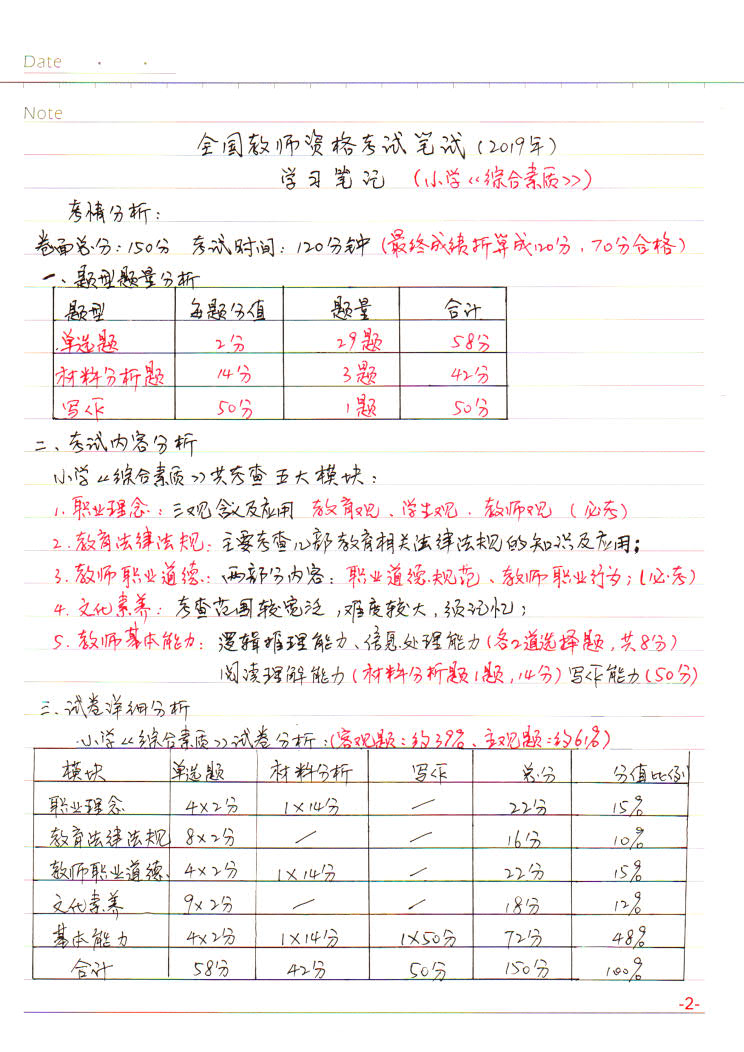 Date
Note
全国教师资格考试笔试(2019年)
学习笔记 (小学《综合素质》)
考情分析:
卷面总分:150分 考试时间:120分钟(最终成绩折算成120分,70分合格)
一、题型题量分析
题型 每题分值 题量 合计
单选题 2分 29题 58分
材料分析题 14分 3题 42分
写作 50分 1题 50分
二、考试内容分析
小学《综合素质》共考查五大模块:
1.职业理念:三观含义及应用 教育观、学生观、教师观 (必考)
2.教育法律法规:主要考查几部教育相关法律法规的知识及应用;
3.教师职业道德:两部分内容:职业道德规范、教师职业行为;(必考)
4.文化素养:考查范围较宽泛,难度较大,须记忆;
5.教师基本能力:逻辑推理能力、信息处理能力(各2道选择题,共8分)
阅读理解能力(材料分析题1题,14分)写作能力(50分)
三、试卷详细分析
小学《综合素质》试卷分析:(客观题:约39%、主观题:约61%)
模块 单选题 材料分析 写作 总分 分值比例
职业理念 4×2分 1×14分 — 22分 15%
教育法律法规 8×2分 — — 16分 10%
教师职业道德 4×2分 1×14分 — 22分 15%
文化素养 9×2分 — — 18分 12%
基本能力 4×2分 1×14分 1×50分 72分 48%
合计 58分 42分 50分 150分 100%
-2-